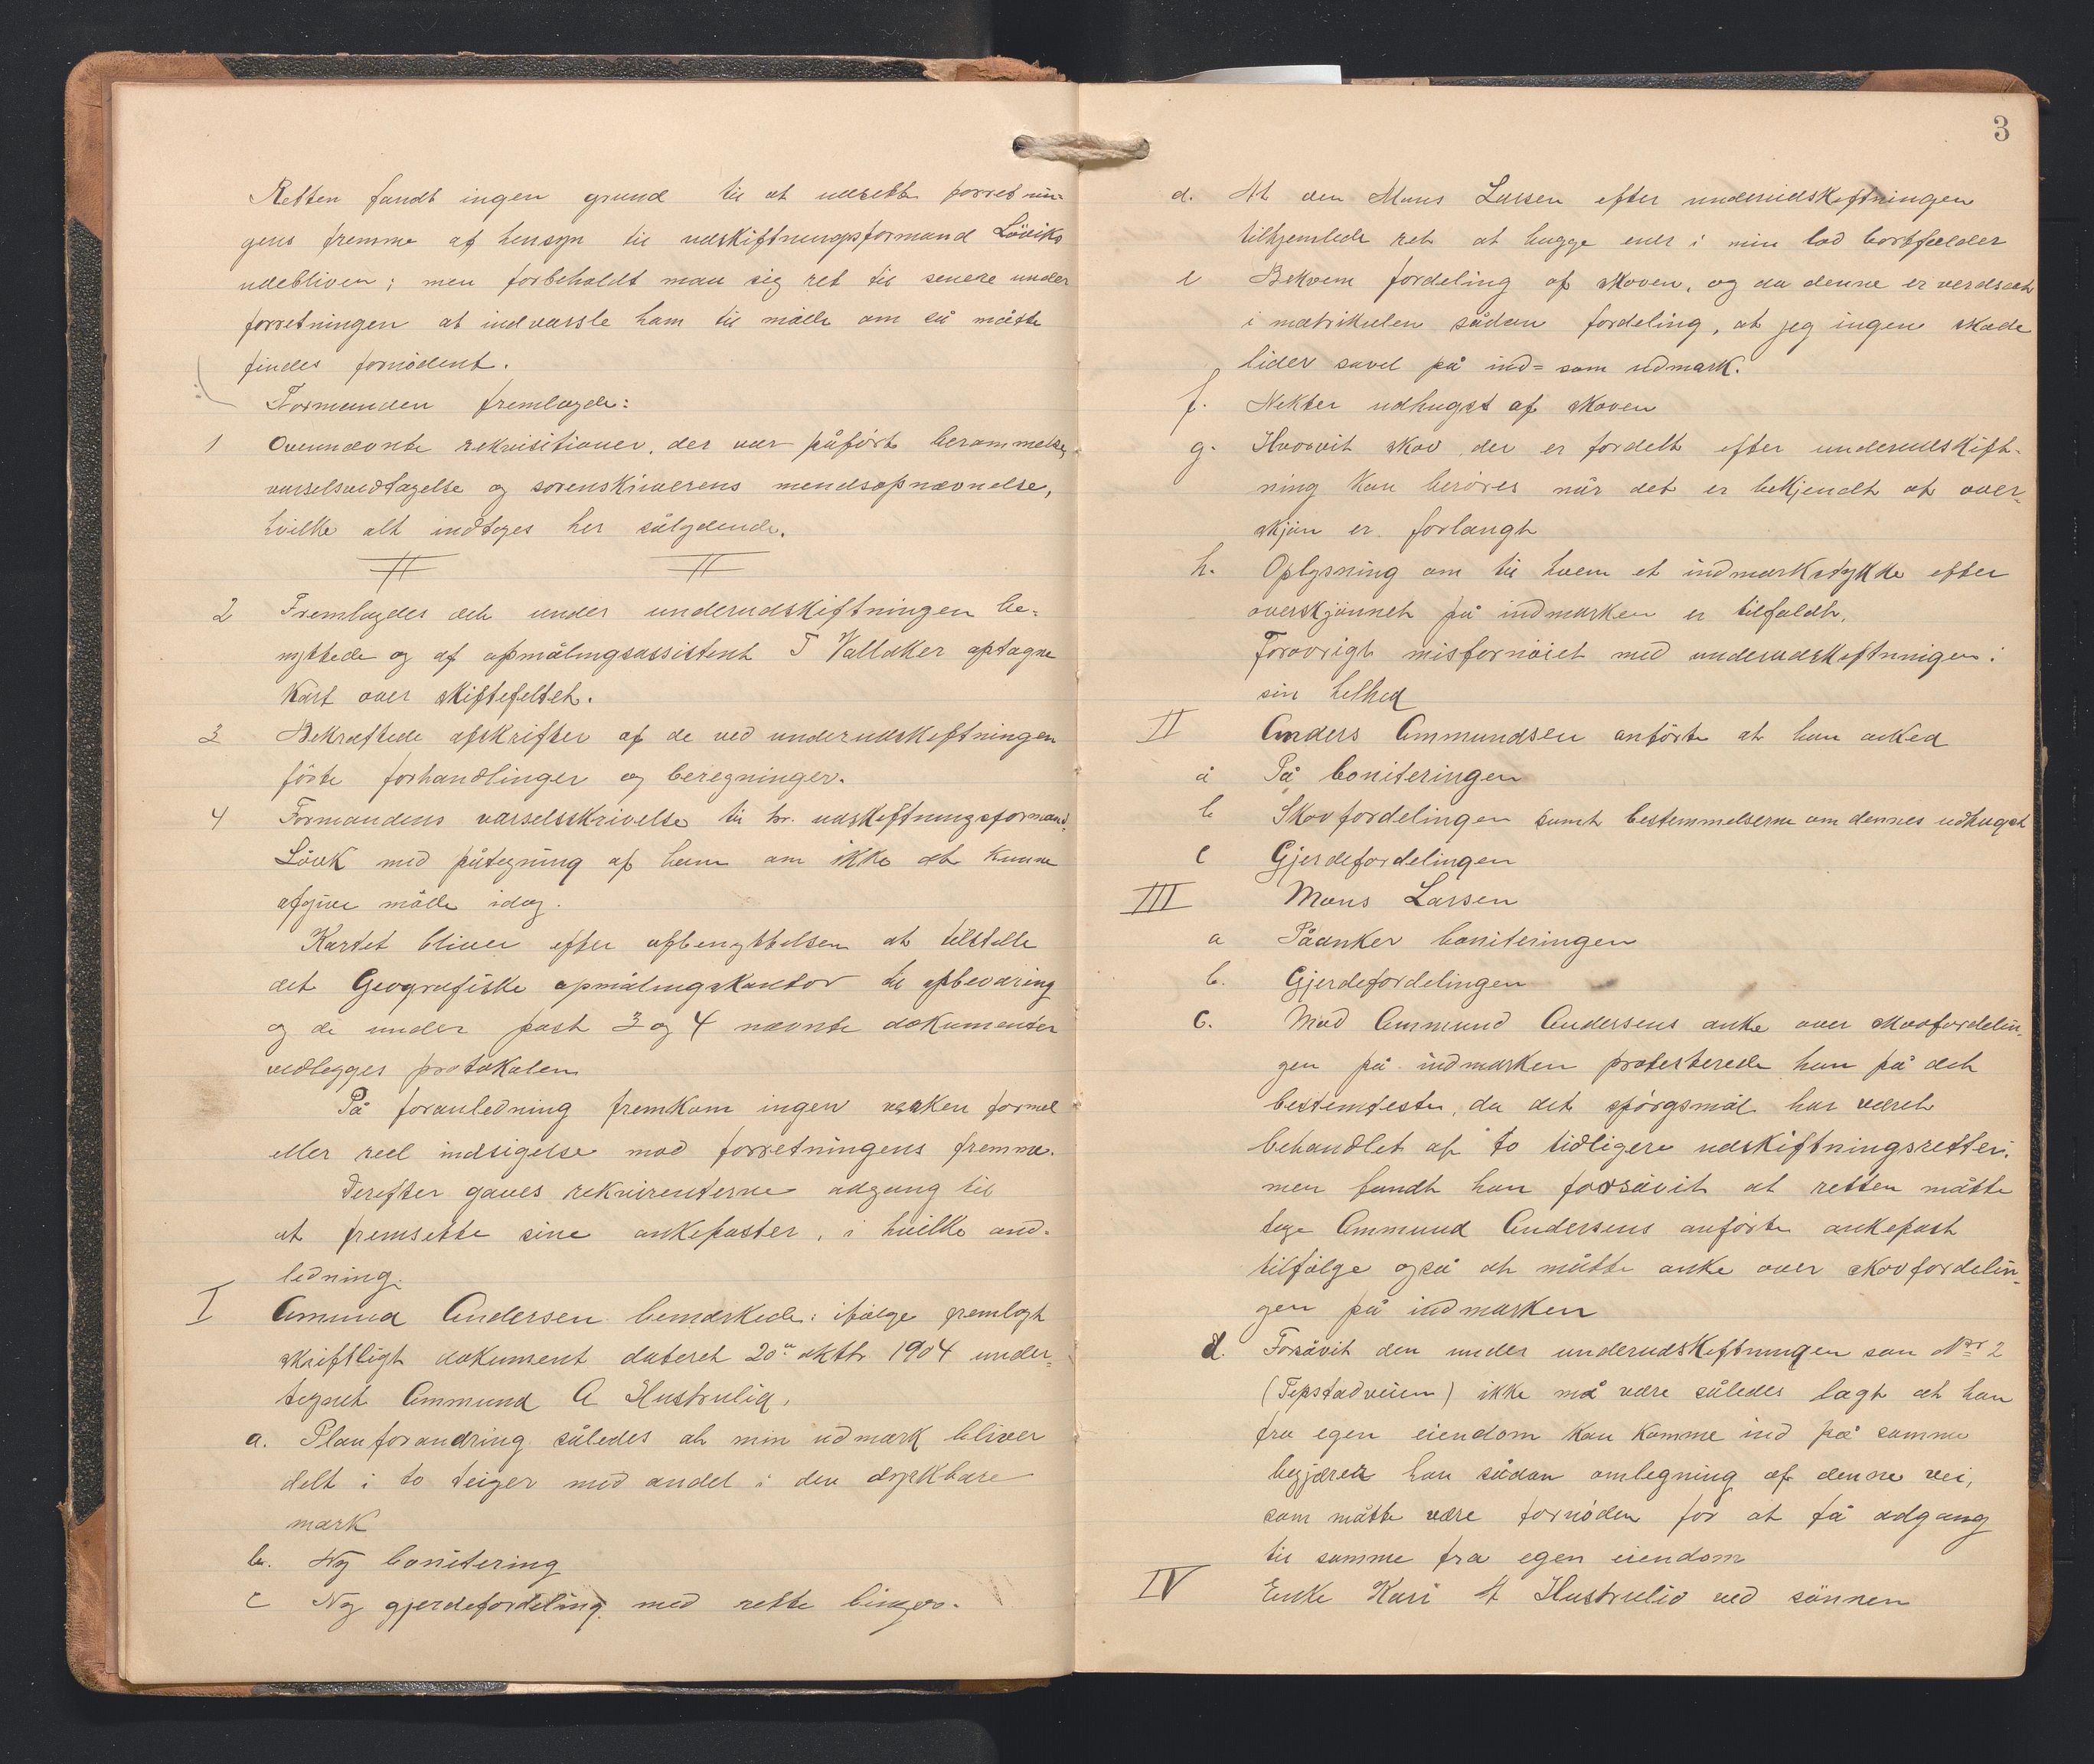 Retten fandt ingen grund til at udsette forretnin-
gens fremme af hensyn til udskiftningsformand Löviks
udebliven; men forbeholdt man sig ret til senere under
forretningen at indvarsle ham til möde om så måtte
findes fornödent.
Formanden fremlagde:
1 Ovennævnte rekvisitioner, der var påfört berammelse,
varselsvedtagelse og sorenskriverens mendsopnævnelse,
hvilke alt indtages her sålydende.
2 Fremlagdes det under underudskiftningen be-
nyttede og af opmålingsassistent T Vallaker optagne
Kart over skiftefeltet.
3 Bekræftede afskrifter af de ved underudskiftningen
förte forhandlinger og beregninger.
4 Formandens varselsskrivelse til hr. udskiftningsformand
Lövik med påtegning af ham om ikke at kunne
afgive möde idag.
Kartet bliver efter afbenyttelsen at tilstille
det Geografiske opmålingskontor til opbevaring
og de under post 3 og 4 nævnte dokumenter
vedlegges protokolen
På foranledning fremkom ingen verken formel
eller reel indsigelse mod forretningens fremme.
Derefter gaves rekvirenterne adgang til
at fremsette sine ankeposter, i hvilke and-
ledning.
I Amund Andersen bemærkede: ifölge fremlagt
skriftligt dokument dateret 20de oktbr 1904 under-
tegnet Ammund A Hustrulid,
a. Planforandring således at min udmark bliver
delt i to teiger med andel i den dyrkbare
mark
b. Ny bonitering
c Ny gjerdefordeling med rette linjer.
3
d. At den Mons Larsen efter underudskiftningen
tilkjendte ret at hugge ener i min lod bortfalder
e Bekvem fordeling af skoven, og da denne er verdsat
i matrikulen sådan fordeling, at jeg ingen skade
lider såvel på ind= som udmark.
f. Nekter udhugst af skoven
g. Hvorvit skov der er fordelt efter underudskift-
ning kan beröves når det er bekjendt at over-
skjön er forlangt
h. Oplysning om til hvem et indmarkstykke efter
overskjönnet på indmarken er tilfaldt.
Forövrigt misfornöiet med underudskiftningen i
sin helhed
II Anders Ammundsen anförte at han anked
a På boniteringen
b Skovfordelingen samt bestemmelserne om dennes udhugst
c Gjerdefordelingen
III Mons Larsen
a Påanker boniteringen
b. Gjerdefordelingen
c. Mod Ammund Andersens anke over skovfordelin-
gen på indmarken protesterede han på det
bestemteste, da det spörgsmål har været
behandlet af to tidligere udskiftningsretter,
men fandt han forsåvit at retten måtte
tage Ammund Andersens anförte ankepost
tilfölge også at måtte anke over skovfordelin-
gen på indmarken
d. Forsåvit den under underudskiftningen som No 2
(Tepstadveien) ikke må være således lagt at han
fra egen eiendom kan komme ind på samme
begjærer han sådan omlegning af denne vei,
som måtte være fornöden for at få adgang
til samme fra egen eiendom
IV Enke Kari A Hustrulid ved sönnen